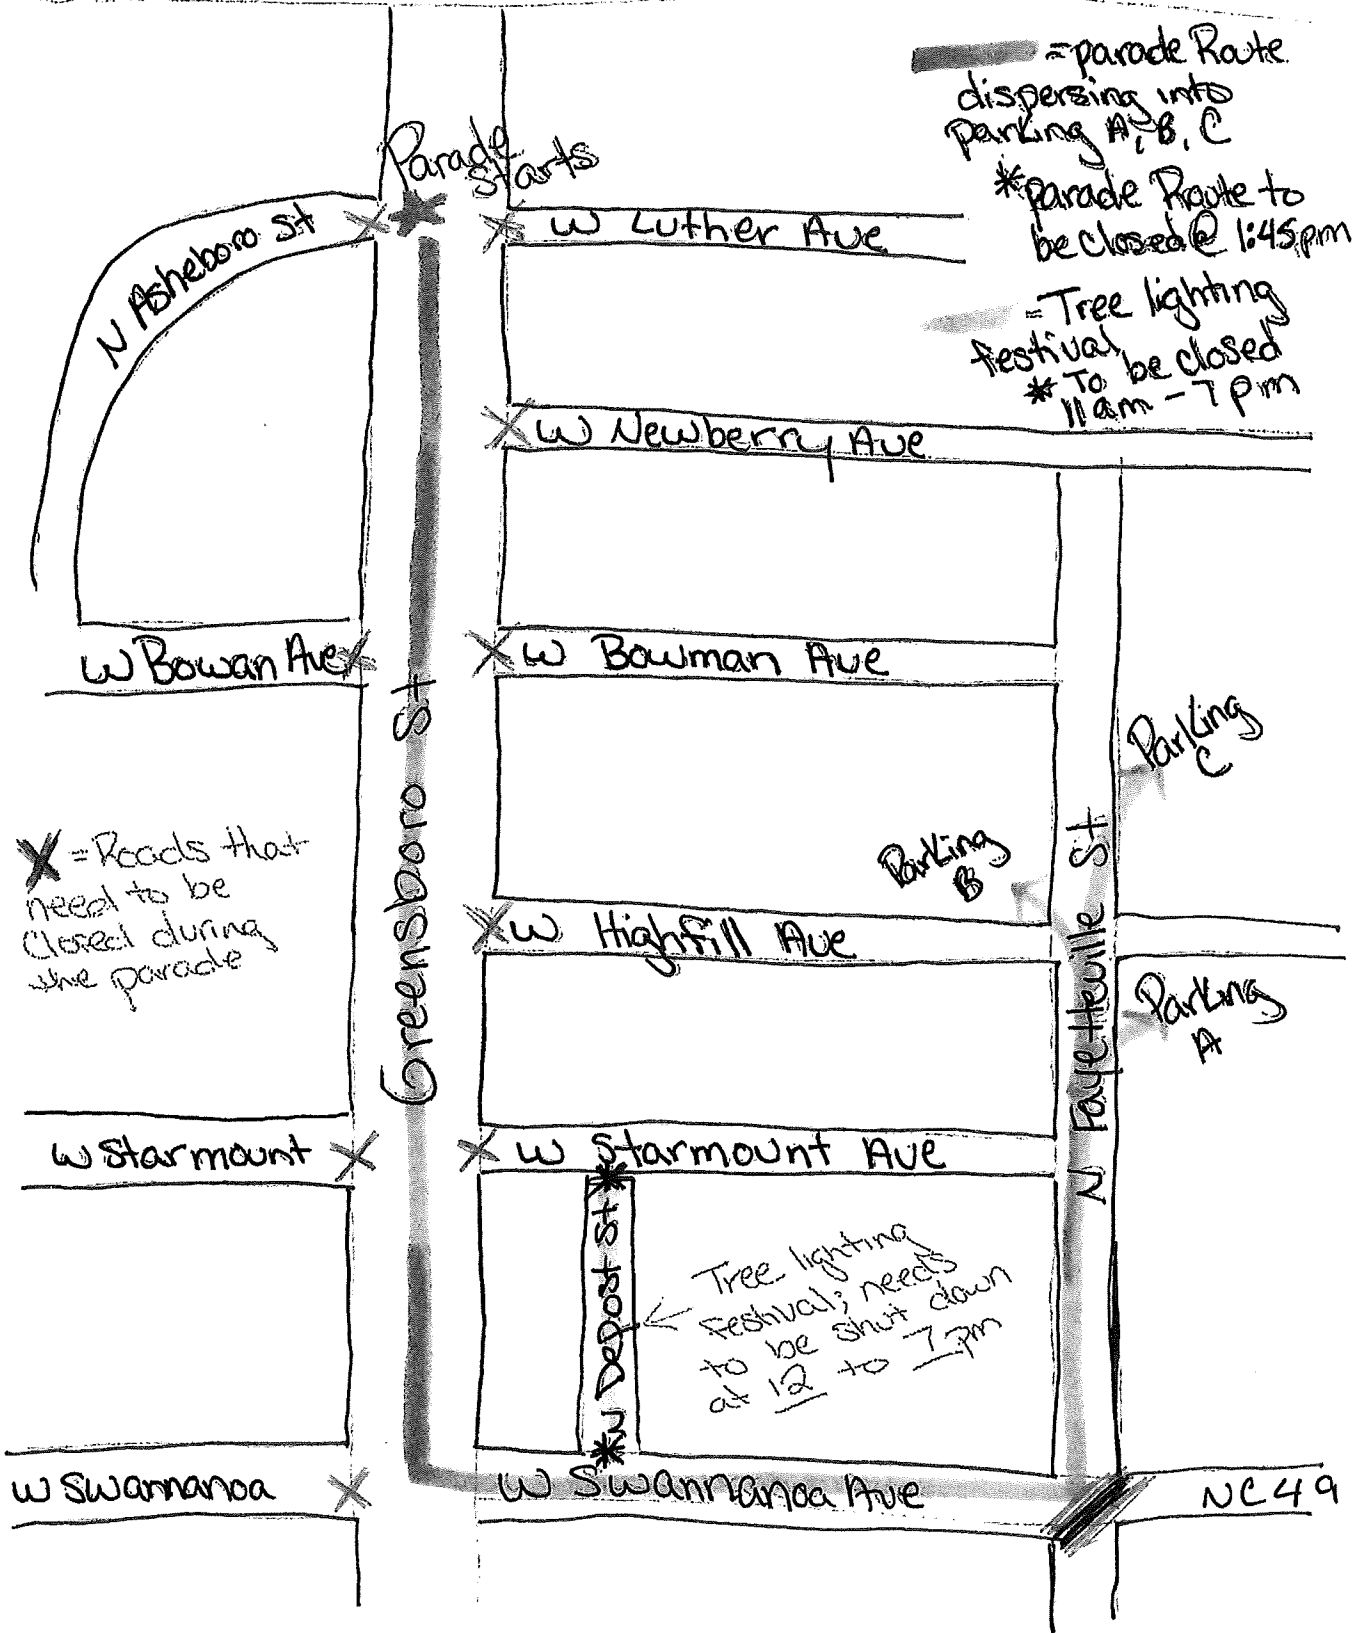 = parade Route
dispersing into
parking A, B, C
* parade Route to
be closed @ 1:45pm
= Tree lighting
festival
* To be closed
11am - 7pm
Parade
starts
N Asheboro St
W Luther Ave
W Newberry Ave
W Bowan Ave
W Bowman Ave
Greensboro St
Parking
C
Parking
B
X = Roads that
need to be
closed during
the parade
W Highfill Ave
N Fayetteville St
Parking
A
W Starmount
W Starmount Ave
N Depost St
Tree lighting
festival; needs
to be shut down
at 12 to 7pm
W Swannanoa
W Swannanoa Ave
NC49